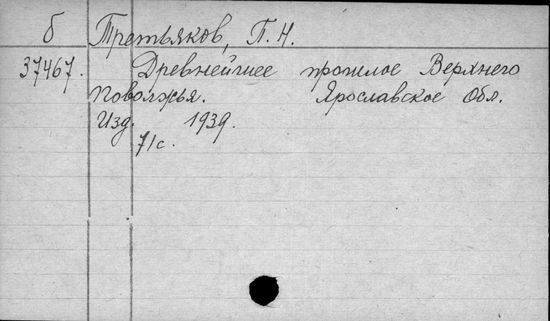 б Третьяков, П. Н.
37467. Древнейшее прошлое Верхнего
Поволжья. Ярославское Обл.
Изд. 1939.
71с.